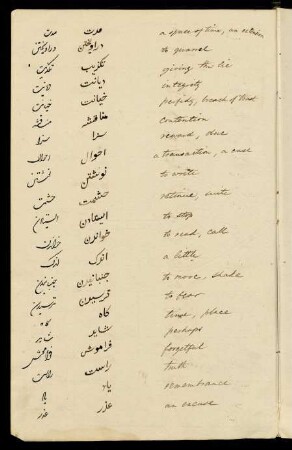 مدت مدت a space of time, an
دراویختن to quarrel
تکذیب تکذیب giving the lie
دیانت دیانت integrity
خیانت خیانت perfidy, breach of trust
مناقشه contention
سزا سزا reward, due
احوال احوال a transaction, a case
نوشتن to write
حشمت حشمت retinue, suite
to stop
خواندن to read, call
اندک اندک a little
جنبانیدن to move, shake
ترسیدن to fear
گاه گاه time, place
شاید شاید perhaps
فراموش forgetful
راست راست truth
یاد یاد remembrance
عذر عذر an excuse